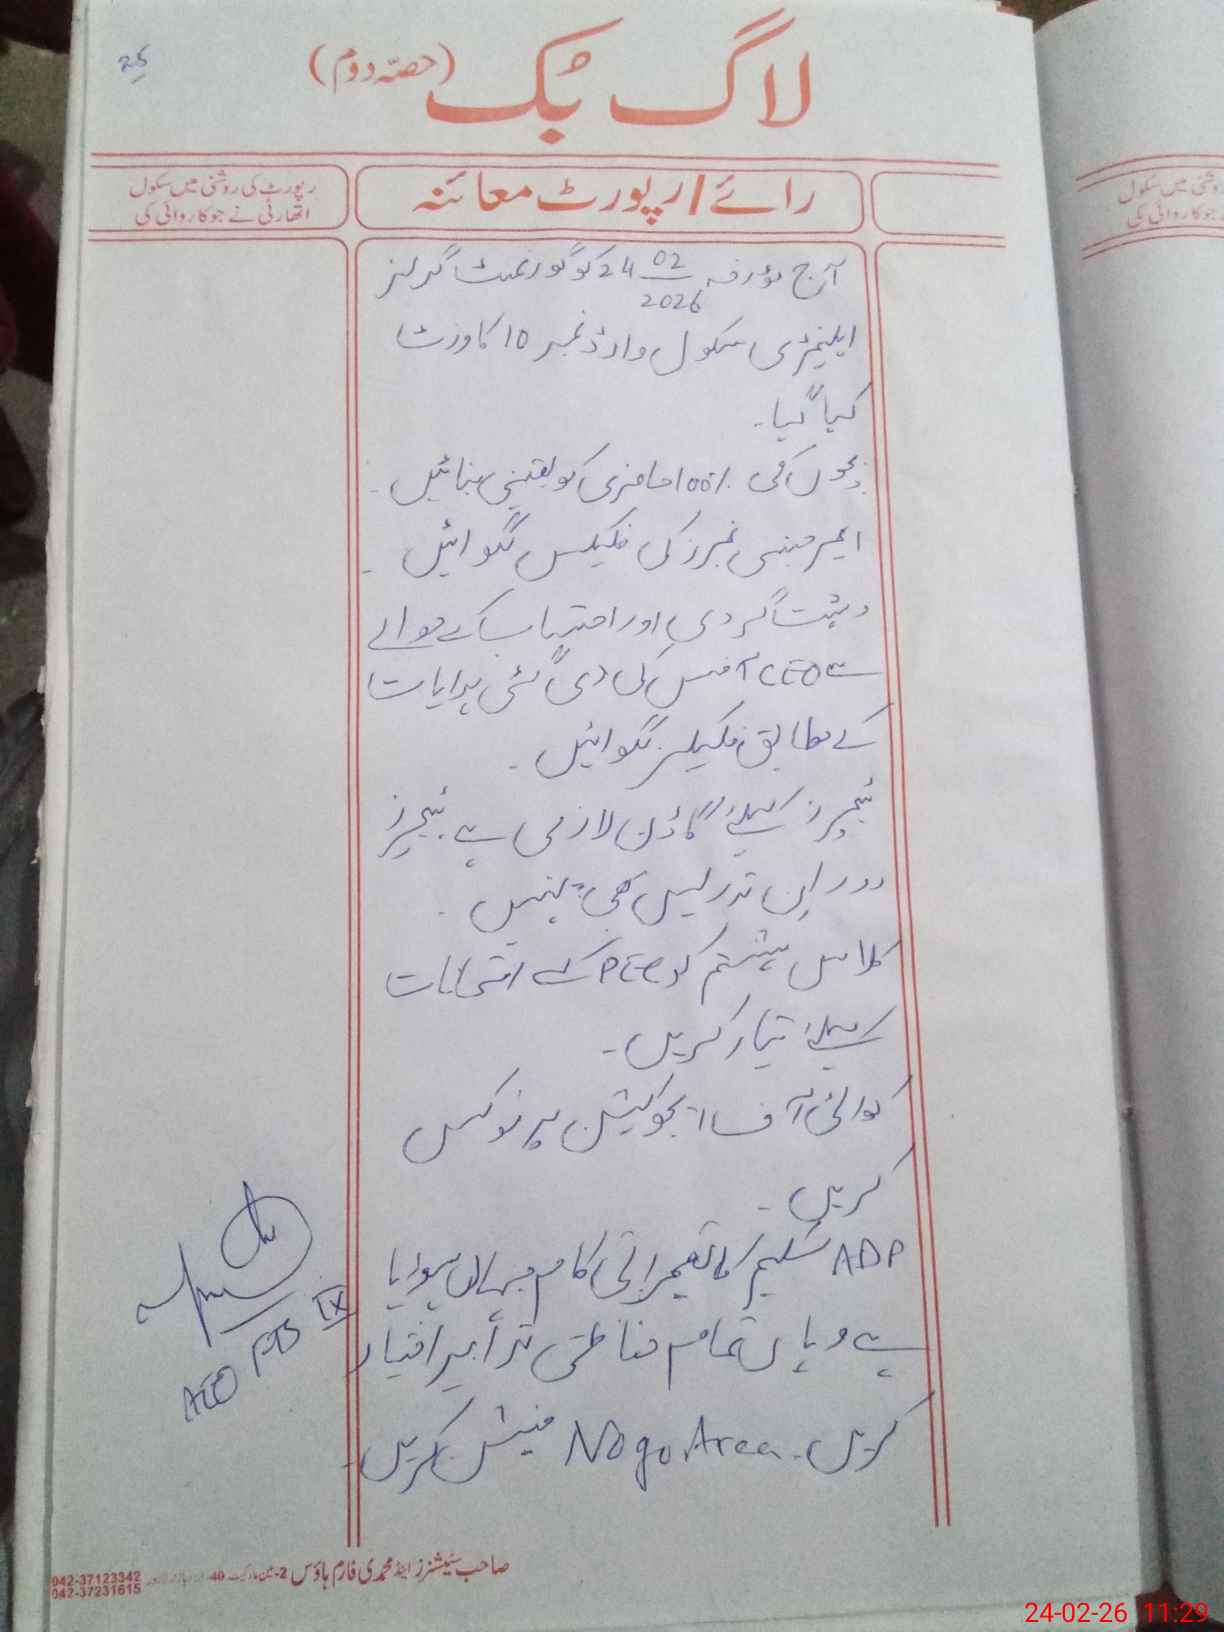 25
لاگ بک (حصہ دوم)
رائے / رپورٹ معائنہ
رپورٹ کی روشنی میں سکول
اتھارٹی نے جو کاروائی کی
آج مؤرخہ 24-02-2026 کو گورنمنٹ گرلز
ایلیمنٹری سکول وارڈ نمبر 10 کا وزٹ
کیا گیا۔
بچوں کی 100% حاضری کو یقینی بنائیں۔
ایمرجنسی نمبرز کی فلیکس لگوائیں۔
دہشت گردی اور احتیاب کے حوالے
سے CEO آفس کی دی گئی ہدایات
کے مطابق فلیکسز لگوائیں۔
ٹیچرز کیلئے گاؤن لازمی ہے۔ ٹیچرز
دوران تدریس بھی پہنیں۔
کلاس ہشتم کو PEC کے امتحانات
کیلئے تیار کریں۔
کوالٹی آف ایجوکیشن پر فوکس
کریں۔
ADP سکیم کا تعمیراتی کام جہاں ہو رہا
ہے وہاں تمام حفاظتی تدابیر اختیار
کریں۔ No go Area مینشن کریں۔
AEO
IX
صاحب سٹیشنرز اینڈ محمدی فارم ہاؤس 2-مین مارکیٹ 40-
042-37123342
042-37231615
روشنی میں سکول
جو کاروائی کی
24-02-26 11:29